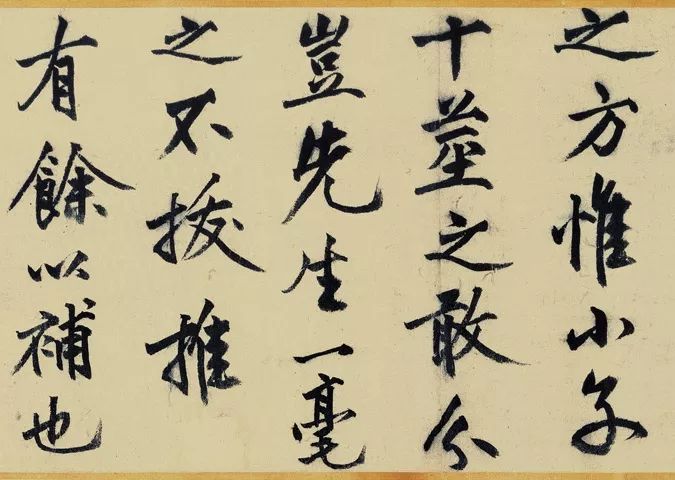 之方惟小子
十莖之敢分
豈先生一毫
之不拔推
有餘以補也